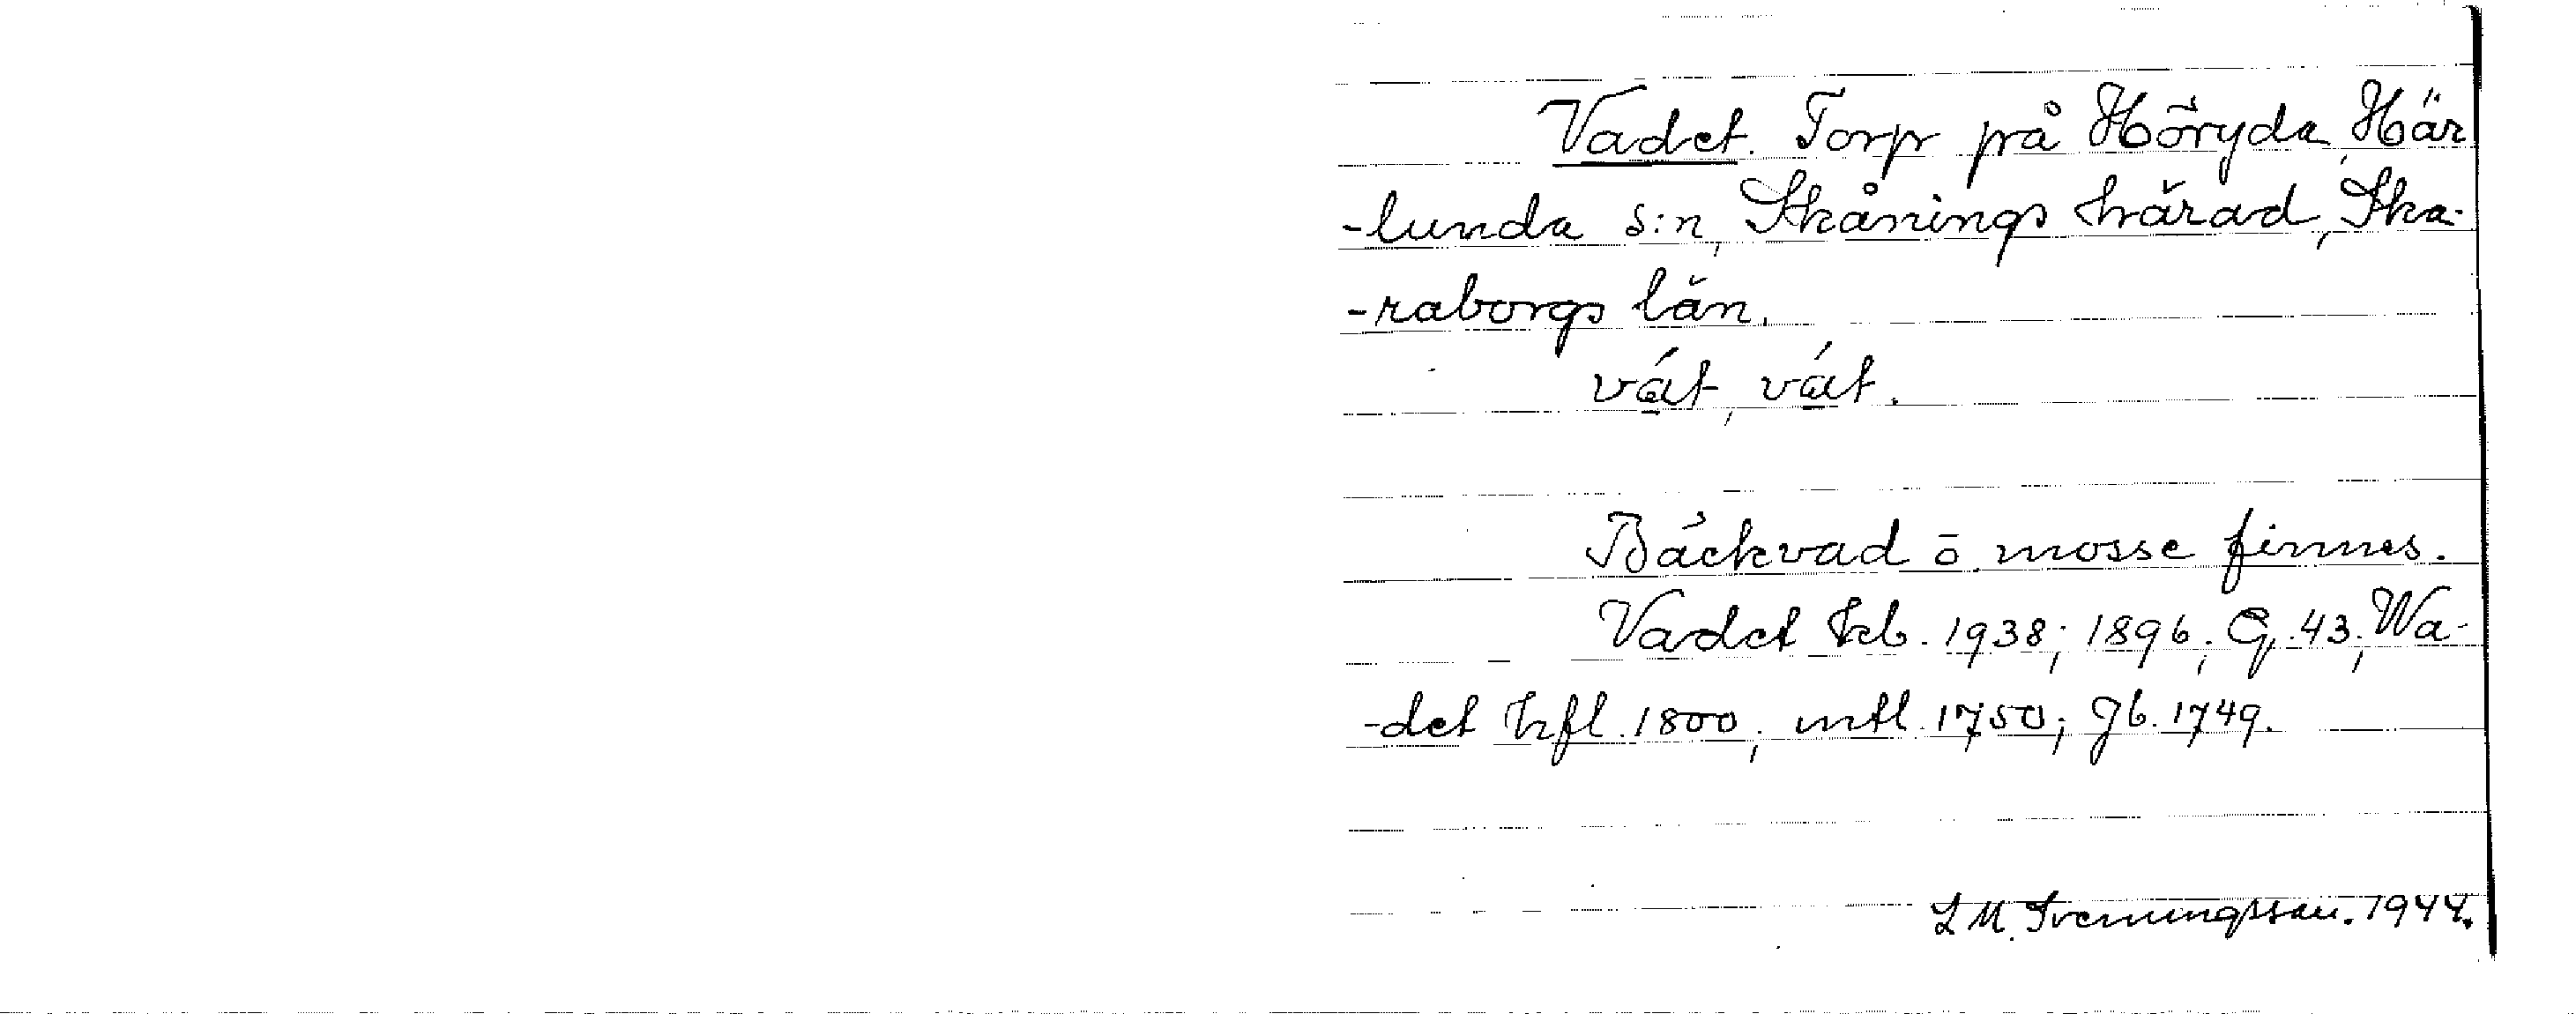 Vadet. Torp på Höryda, Här
-lunda s:n, Skånings härad, Ska-
-raborgs län.
vát, vát.
Bäckvad ō. mosse finnes.
Vadet kb. 1938; 1896; G. 43; Wa-
-det hfl. 1800; mtl. 1750; Jb. 1749.
L M. Svenungsson. 1944.